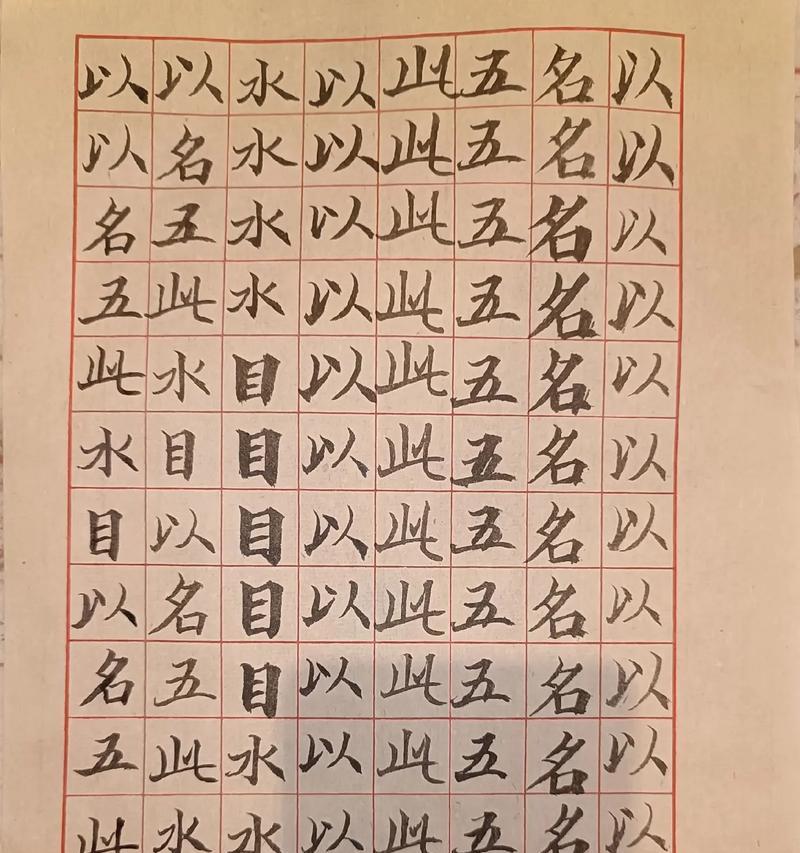 以以以以以以以以以以以
名名名名名名名名名名名
五五五五五五五五五五五
此此此此此此此此此此此
以以以以以以以以以以以
水水水水目目目目目水水
以名五此水目以名五此水
以以名五此水目以名五此